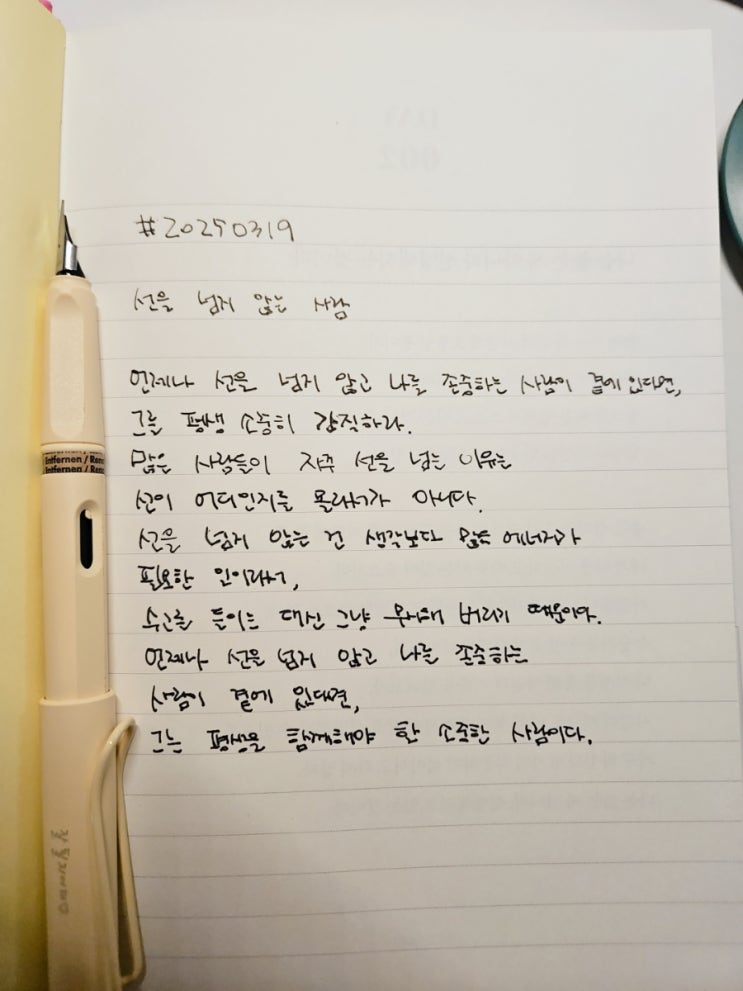 DAY
002
#20250319
선을 넘지 않는 사람
언제나 선을 넘지 않고 나를 존중하는 사람이 곁에 있다면,
그를 평생 소중히 간직하라.
많은 사람들이 자꾸 선을 넘는 이유는
선이 어디인지를 몰라서가 아니다.
선을 넘지 않는 건 생각보다 많은 에너지가
필요한 일이라서,
수고를 들이는 대신 그냥 무시해 버리기 때문이다.
언제나 선을 넘지 않고 나를 존중하는
사람이 곁에 있다면,
그는 평생을 함께해야 할 소중한 사람이다.
Entfernen / Rem
Entfernen / Rem